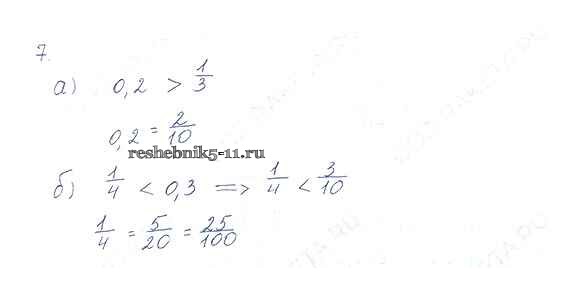 7.
а) 0,2 > 1/3
0,2 = 2/10
reshebnik5-11.ru
б) 1/4 < 0,3 => 1/4 < 3/10
1/4 = 5/20 = 25/100